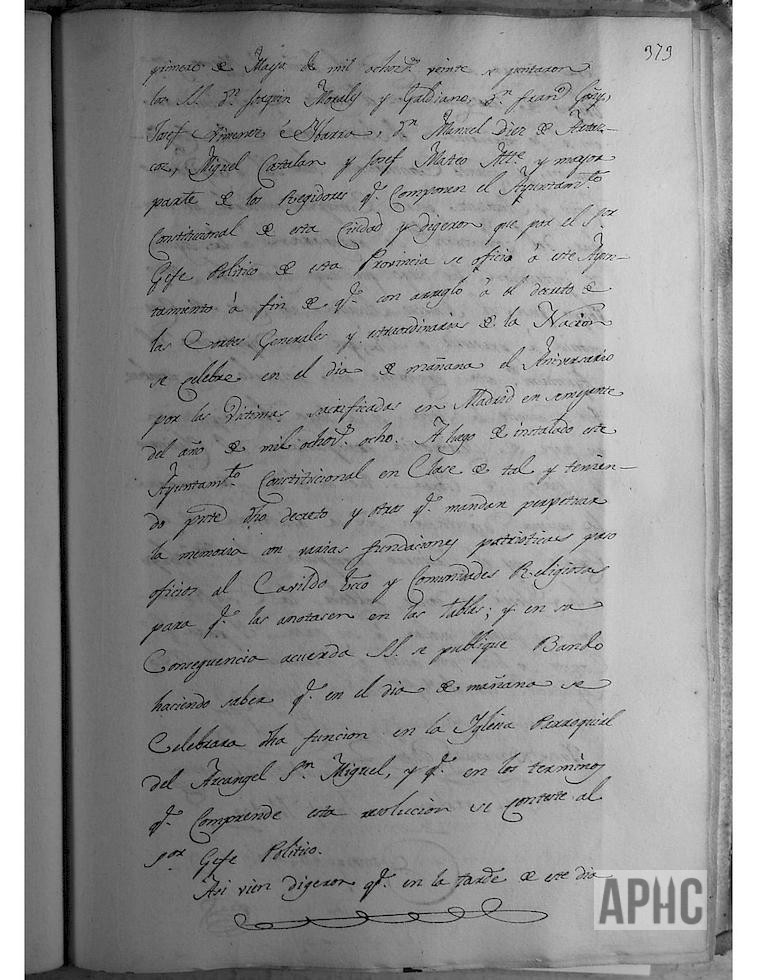 373
primero de Mayo de mil ochozs. veinte se juntaron
los SS. Dn. Joaquin Morales y Galdiano, Dn. Franco
Josef Ximenez é Ybarra, Dn. Manuel Diez de
Miguel Catalan y Josef Mateo Atte. y mayor
parte de los Regidores q. Componen el Ayuntamto.
Constitucional de esta Ciudad y digeron que por el Sor.
Gefe Politico de esta Provincia se oficia á este Ayun-
tamiento á fin de q. con arreglo á el decreto de
las Cortes Generales y extraordinarias de la Nacion
se celebre en el dia de mañana el Aniversario
por las Victimas sacrificadas en Madrid en semejante
del año de mil ochozs. ocho. A luego de instalado este
Ayuntamto. Constitucional en Clase de tal y tenien-
do pnte dho decreto y otros q. mandan perpetuar
la memoria con varias fundaciones patrioticas paso
oficios al Cavildo Ecco y Comunidades Religiosas
para q. las anotasen en las tablas; y en su
Conseguencia acuerda SS. se publique Bando
haciendo saber q. en el dia de mañana se
Celebrara dha funcion en la Yglesia Parroquial
del Arcangel Sn. Miguel, y q. en los terminos
q. Comprende esta resolucion se conteste al
Sor. Gefe Politico.
Asi vien digeron q. en la tarde de este dia
APHC